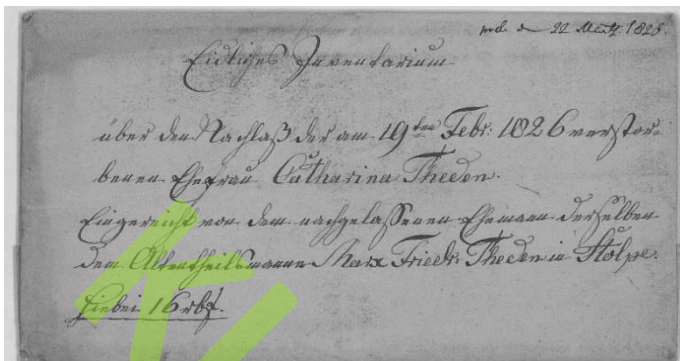 d. 22 Märtz 1826.
Eidliches Inventarium
über den Nachlaß der am 19ten Febr: 1826 verstor:
benen Ehefrau Catharina Theden.
Eingereicht von dem nachgelassenen Ehemann derselben
dem Altentheilsmanne Marx Friedr: Theden in Stolpe.
Hiebei 16 rbß.